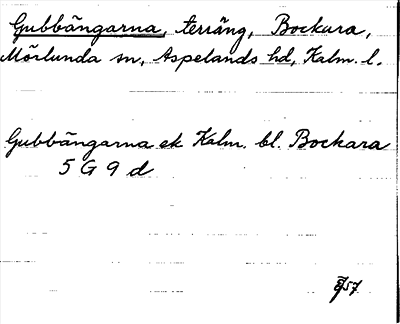 Gubbängarna, terräng, Bockara,
Mörlunda sn, Aspelands hd, Kalm. l.
Gubbängarna ek Kalm. bl. Bockara
5 G 9 d
57